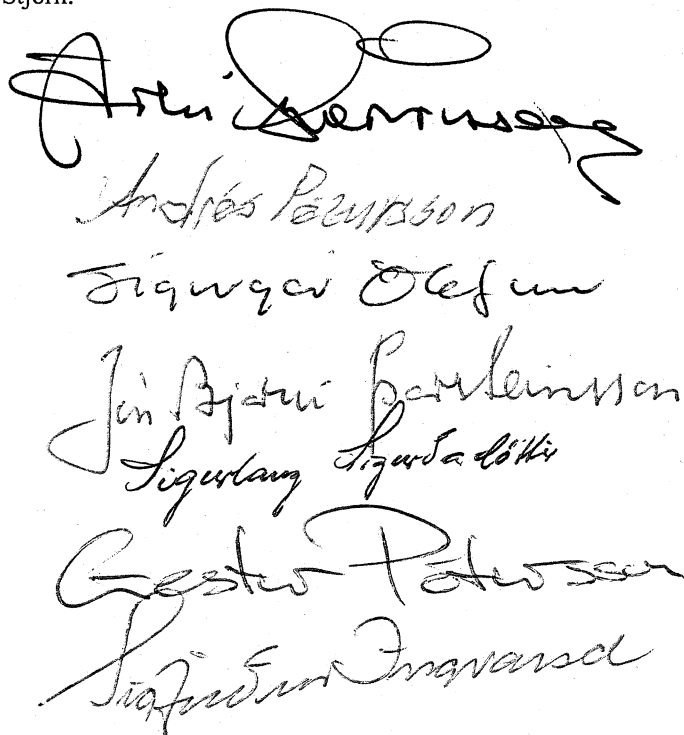 Stjórn:
Árni
Andrés Pétursson
Sigurgeir Ólafsson
Jón Bjarni Þorsteinsson
Sigurlaug Sigurðardóttir
Gestur Pétursson
Ingvarsd